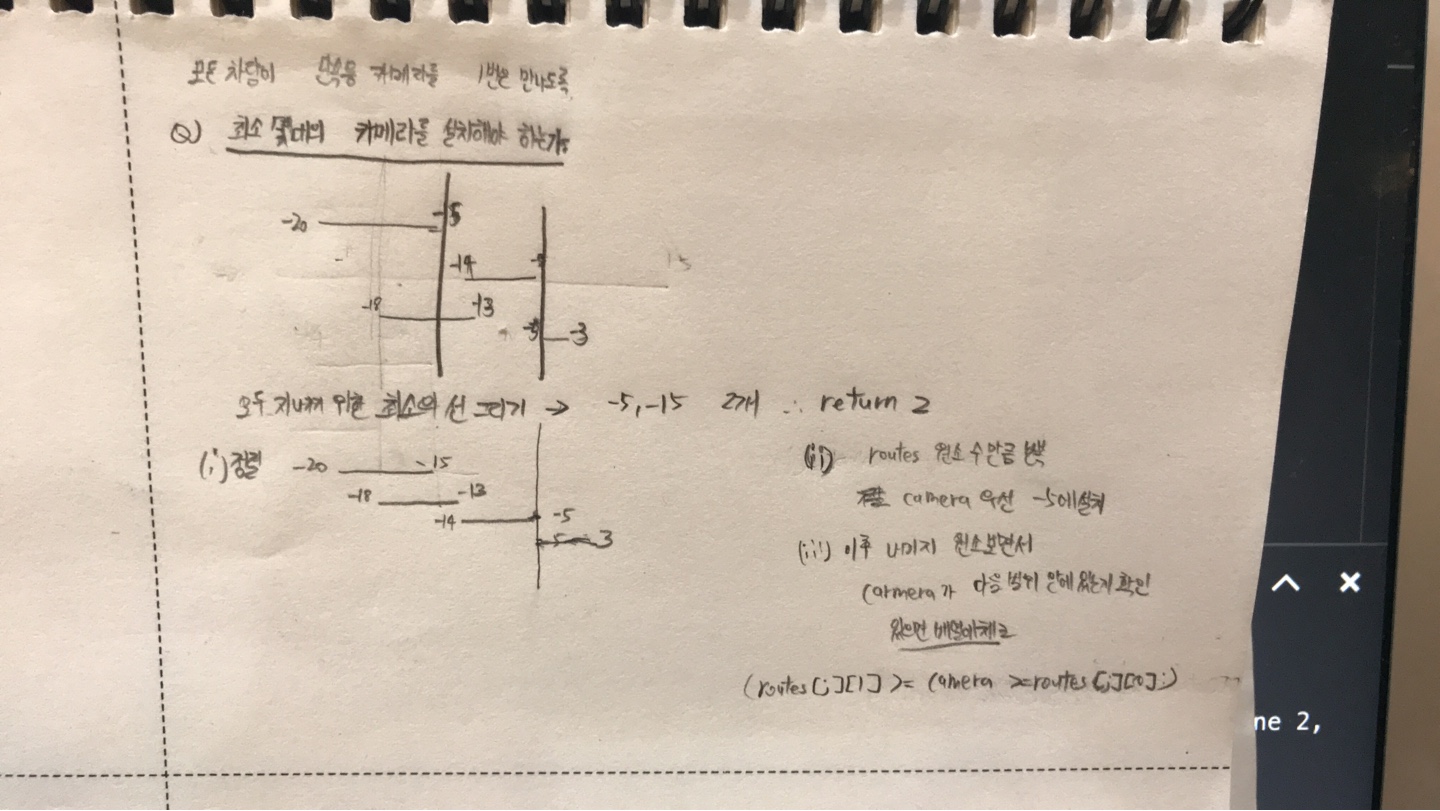 모든 차량이 단속용 카메라를 1번은 만나도록
Q) 최소 몇대의 카메라를 설치해야 하는가?
-20 -15
-14 -5
-18 -13
-5 -3
모두 지나기 위한 최소의 선 그리기 → -5, -15 2개 ∴ return 2
(i) 정렬 -20 -15
-18 -13
-14 -5
-5 -3
(ii) routes 원소 수만큼
camera 우선 -5에 설치
(iii) 이후 나머지 원소보면서
carmera가 다음 범위 안에 있는지 확인
있으면 배열에 체크
(routes[j][1] >= camera >= routes[j][0];)
ne 2,